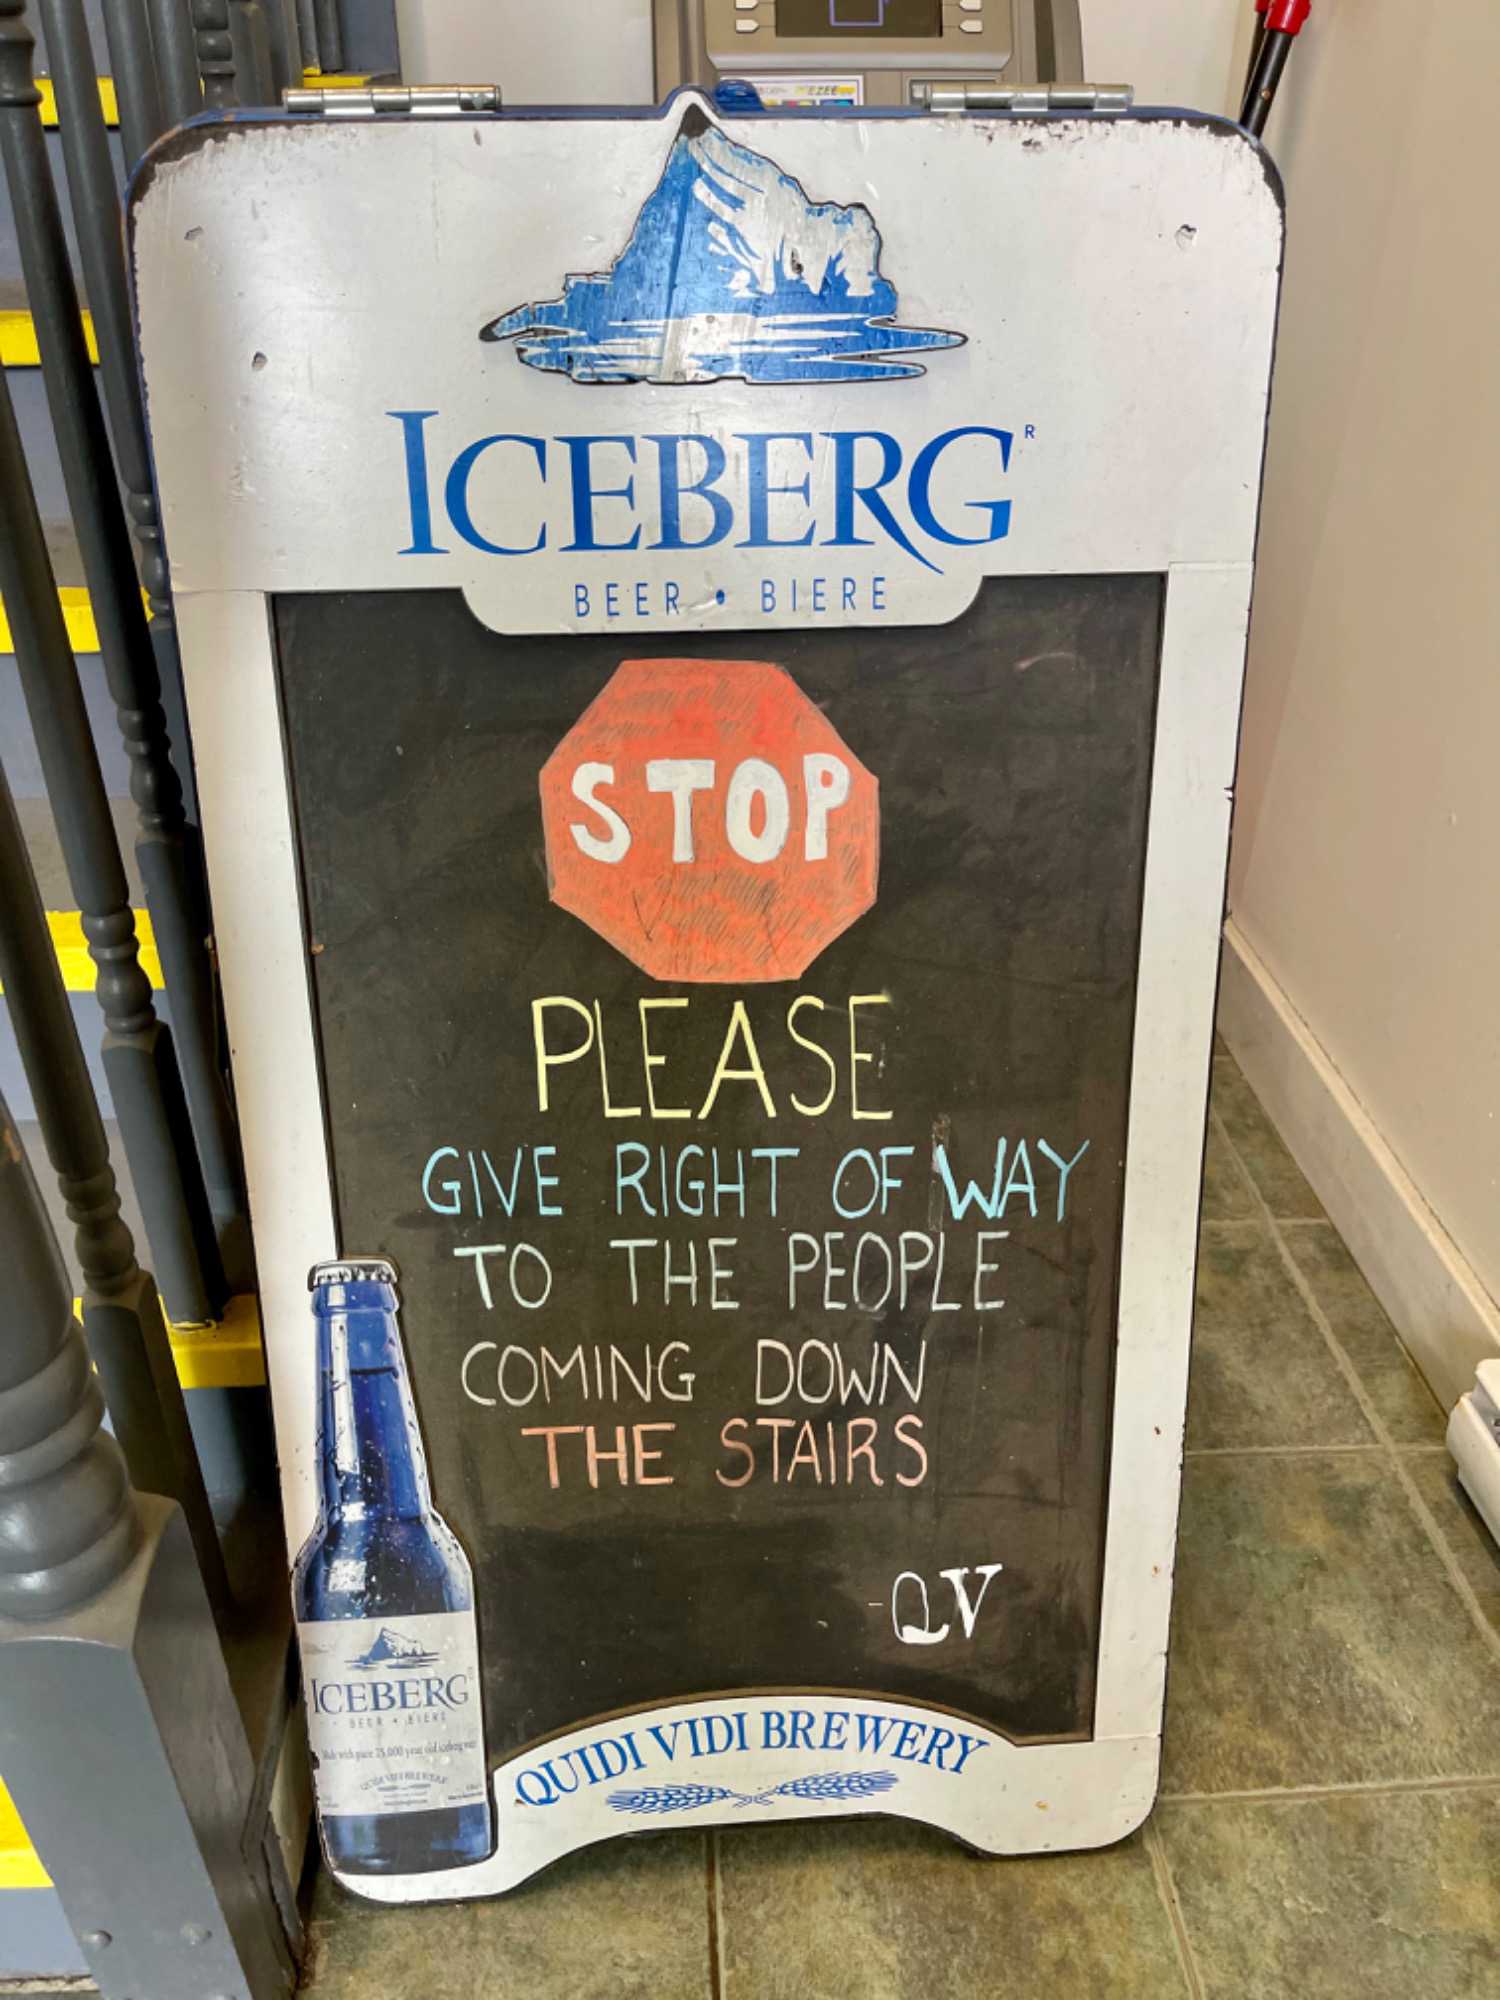 EZEE
ICEBERG R
BEER • BIERE
STOP
PLEASE
GIVE RIGHT OF WAY
TO THE PEOPLE
COMING DOWN
THE STAIRS
-QV
ICEBERG
BEER • BIERE
Made with pure 25,000 year old iceberg water
QUIDI VIDI BREWERY
QUIDI VIDI BREWERY